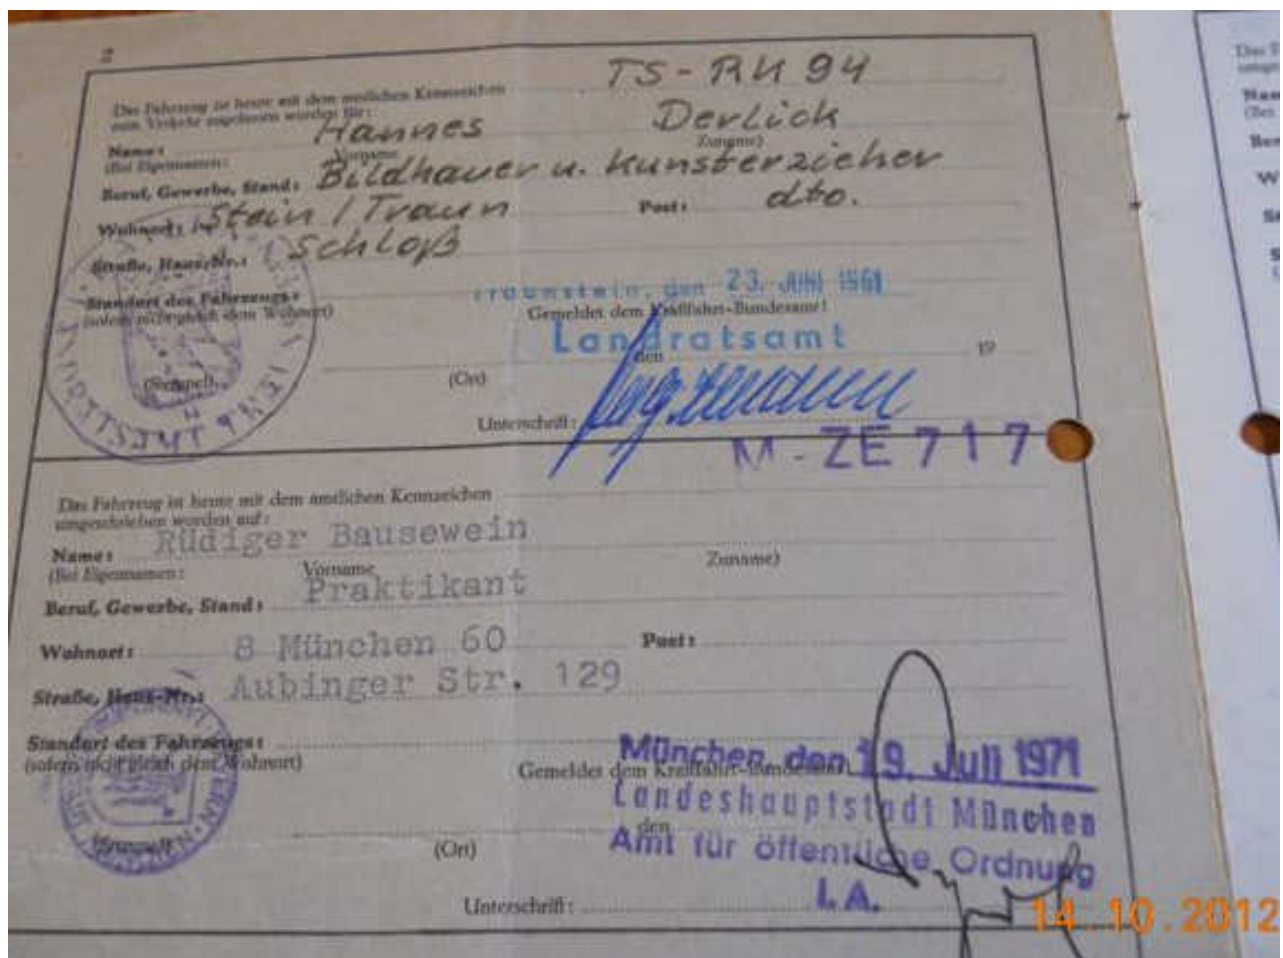 2
Das Fahrzeug ist heute mit dem amtlichen Kennzeichen TS-RU 94
zum Verkehr zugelassen worden für:
Name: Hannes Derlick
(Bei Eigennamen: Vorname Zuname)
Beruf, Gewerbe, Stand: Bildhauer u. Kunsterzieher
Wohnort: Stein / Traun Post: dto.
Straße, Haus-Nr.: Schloß
Standort des Fahrzeugs:
(sofern nicht gleich dem Wohnort)
Traunstein, den 23. JUNI 1961
Gemeldet dem Kraftfahrt-Bundesamt!
Landratsamt
den 19
(Stempel) (Ort)
Unterschrift:
M - ZE 717
Das Fahrzeug ist heute mit dem amtlichen Kennzeichen
umgeschrieben worden auf:
Name: Rüdiger Bausewein
(Bei Eigennamen: Vorname Zuname)
Beruf, Gewerbe, Stand: Praktikant
Wohnort: 8 München 60 Post:
Straße, Haus-Nr.: Aubinger Str. 129
Standort des Fahrzeugs:
(sofern nicht gleich dem Wohnort)
München, den 19. Juli 1971
Gemeldet dem Kraftfahrt-Bundesamt
Landeshauptstadt München
den
Amt für öffentliche Ordnung
(Stempel) (Ort)
I. A.
Unterschrift:
14.10.2012